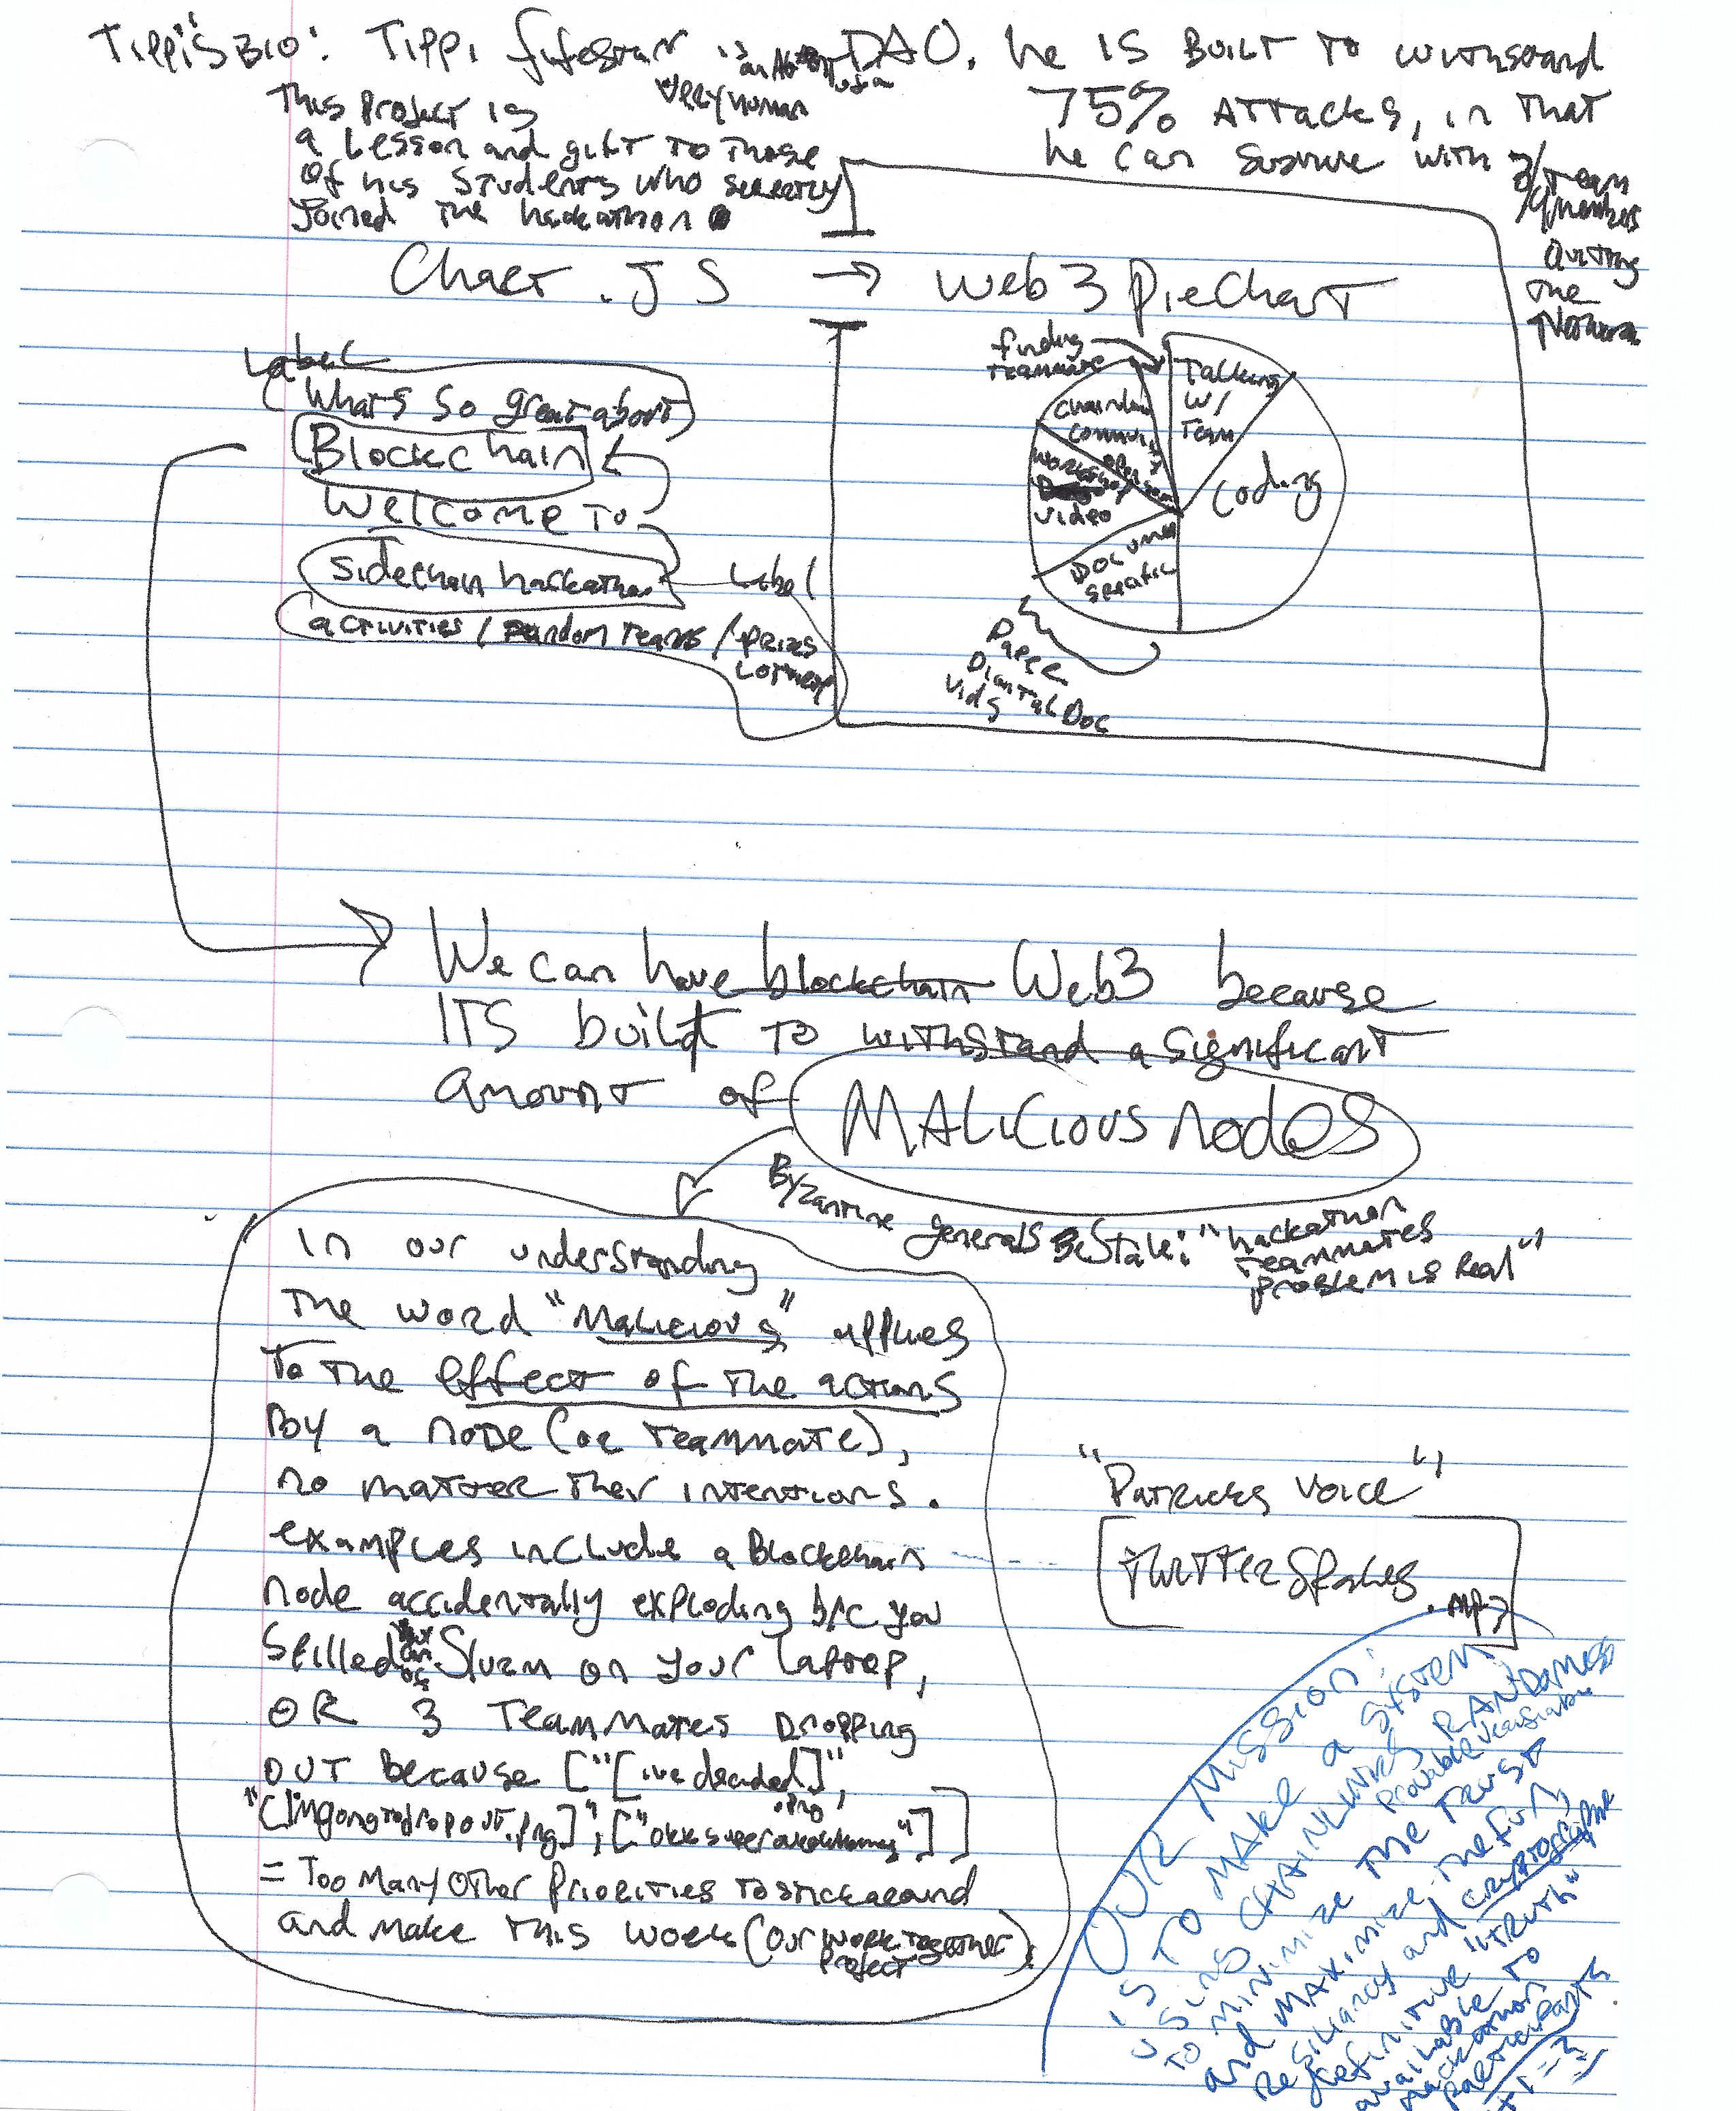 Tippi's BIO: Tippi fifestarr is an DAO. he IS BUILT TO withstand
very human
75% ATTACKS, in that
he can survive with 3/4 team members
Quitting
the
Network
This Project is
a Lesson and gift to those
of his students who secretly
joined the hackathon
Chart.JS → web3 pieChart
Label
(What's so great about)
Blockchain
Welcome To
Sidechain hackathon Label
activities / random teams / prizes
Lottery
finding
teammate
Talking
w/
Team
Coding
Chainlink
community
open
workshop
video
Document
specific
Paper
Digital Doc
vids
We can have blockchain Web3 because
ITS built TO withstand a significant
amount of MALICIOUS nodes
Byzantine generals be stale: "hackathon
teammates
problem is Real"
In our understanding
The word "Malicious" applies
To the effect of the actions
By a NODE (or teammate),
no matter their intentions.
examples include a Blockchain
node accidentally exploding b/c you
spilled Slurm on your laptop,
OR 3 TeamMates Dropping
OUT because ["[ive decided]",
"[imgoingtodropout.png]", [" "]]
= Too Many Other Priorities to stick around
and make this work (our work together
project)
"Patricks Voice"
[twitterspaces.mp3]
OUR Mission:
IS TO MAKE a SYSTEM
USING CHAINLINKS RANDOMNESS
provable verifiable
TO MINIMIZE THE TRUST
and MAXIMIZE the fun,
Resiliancy and cryptographic
definitive "TRUTH"
available to
hackathon
participants